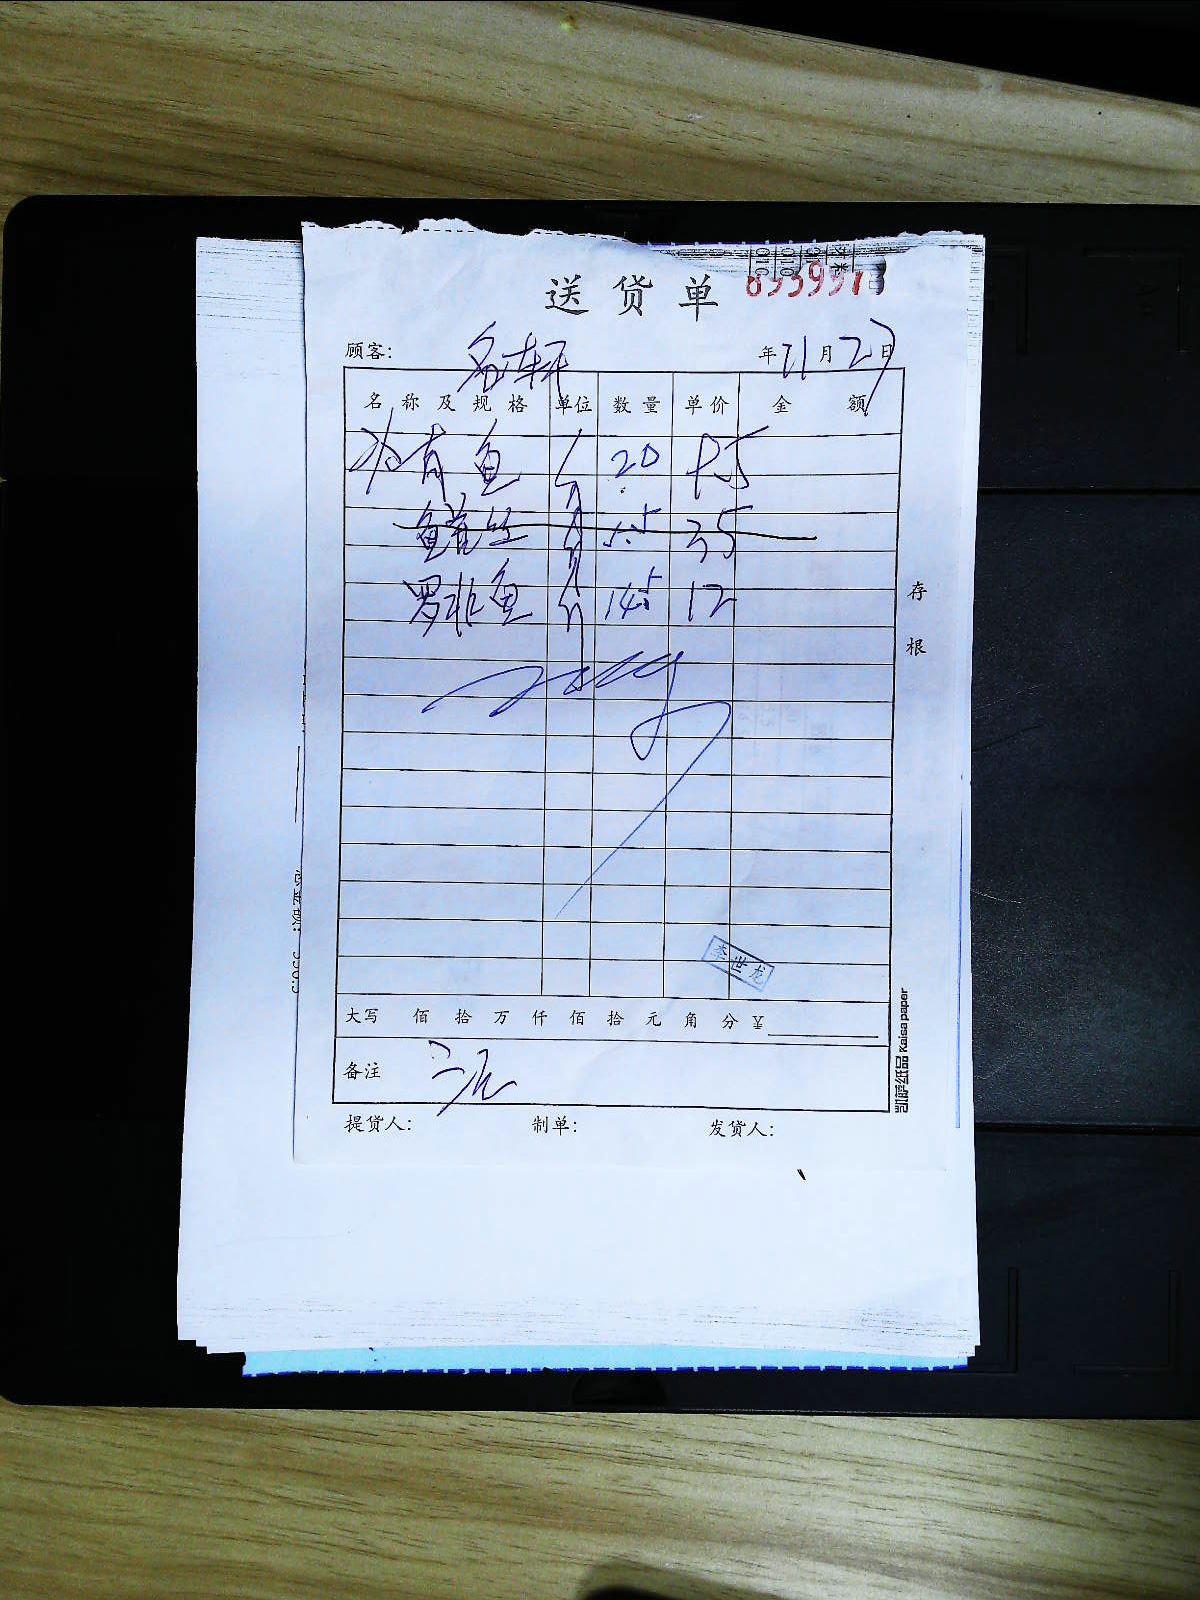 送货单 8959973
顾客: 名轩 年 11 月 27 日
名称及规格 单位 数量 单价 金额
鱼 斤 20
斤 5.5 35
罗非鱼 斤 14.5 12
存根
李世龙
大写 佰 拾 万 仟 佰 拾 元 角 分 ¥
备注
提货人: 制单: 发货人:
凯萨纸品 Kaisa paper